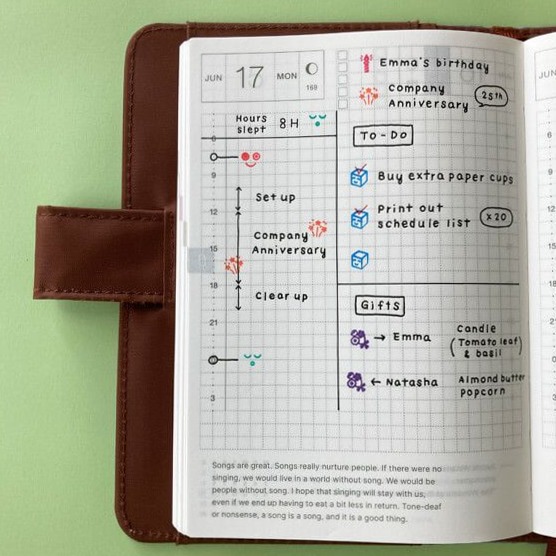 JUN 17 MON
168
Emma's birthday
Company
Anniversary
25th
Hours
slept
8H
To-Do
6
9
12
15
18
21
0
3
Set up
Company
Anniversary
Clear up
Buy extra paper cups
Print out
schedule list
x20
Gifts
→ Emma
Candle
(Tomato leaf
& basil)
← Natasha
Almond butter
popcorn
Songs are great. Songs really nurture people. If there were no
singing, we would live in a world without song. We would be
people without song. I hope that singing will stay with us,
even if we end up having to eat a bit less in return. Tone-deaf
or nonsense, a song is a song, and it is a good thing.
JUN